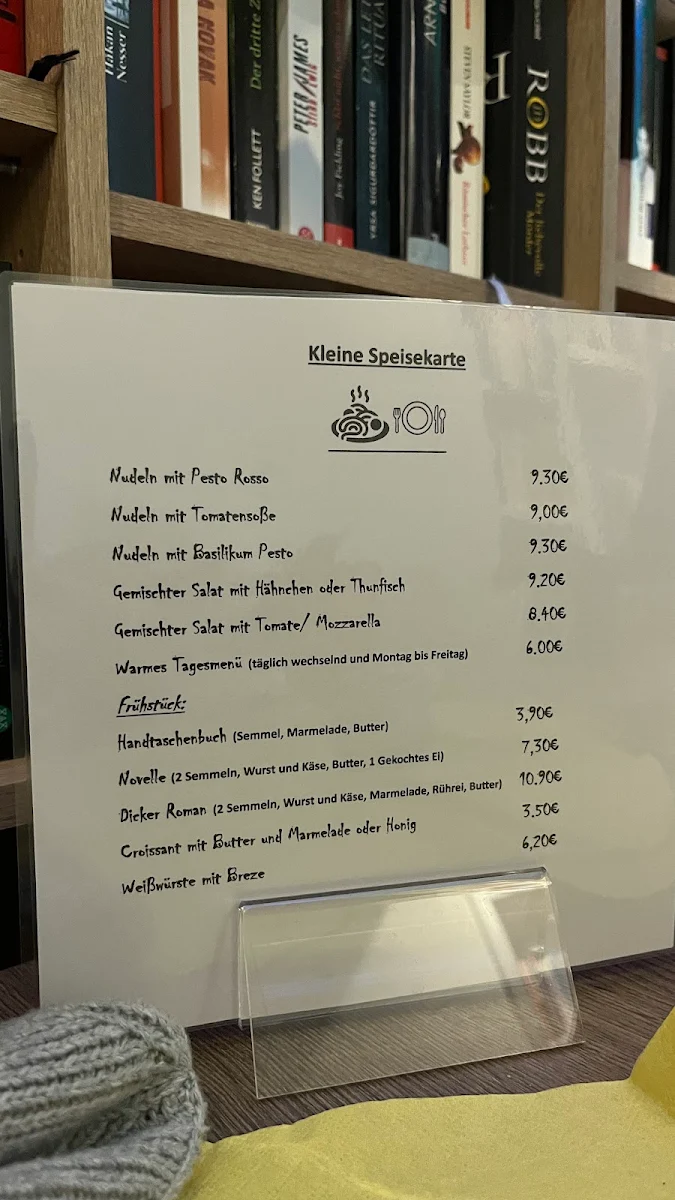 Håkan
Nesser
KOVAK
Der dritte
KEN FOLLETT
PETER JAMES
Joy Fielding
YRSA SIGURDARDÓTTIR
DAS LETZTE
RITUAL
STEVEN SAYLOR
ROBB
Der liebevolle
Mörder
Kleine Speisekarte
Nudeln mit Pesto Rosso 9.30€
Nudeln mit Tomatensoße 9,00€
Nudeln mit Basilikum Pesto 9.30€
Gemischter Salat mit Hähnchen oder Thunfisch 9.20€
Gemischter Salat mit Tomate/ Mozzarella 8.40€
Warmes Tagesmenü (täglich wechselnd und Montag bis Freitag) 6.00€
Frühstück:
Handtaschenbuch (Semmel, Marmelade, Butter) 3,90€
Novelle (2 Semmeln, Wurst und Käse, Butter, 1 Gekochtes Ei) 7,30€
Dicker Roman (2 Semmeln, Wurst und Käse, Marmelade, Rührei, Butter) 10.90€
Croissant mit Butter und Marmelade oder Honig 3.50€
Weißwürste mit Breze 6,20€